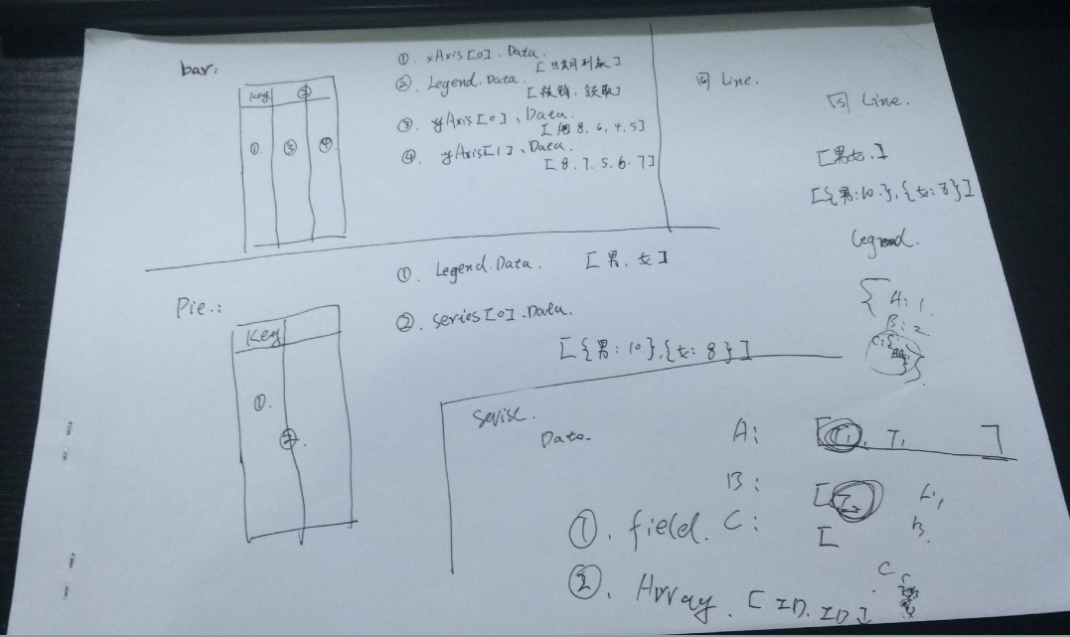 bar:
key ②
① ③ ④
①. xAxis[0].Data.
[日期列表]
②. Legend.Data.
[核销. 领取]
③. yAxis[0]、Data.
8. 6. 4. 5]
④. yAxis[1]、Data.
[8. 7. 5. 6. 7]
图 Line.
图 Line.
[男女.]
[{男:10.},{女:8}]
Legend.
{ A: 1.
B: 2
Pie.:
Key
①.
②.
①. Legend.Data. [男. 女]
②. Series[0].Data.
[{男:10},{女:8}]
Serise.
Data.
A: [ I1, I, ]
B: [ I2
C: [
B.
C
C
①. field.
②. Array. [ID. ID]